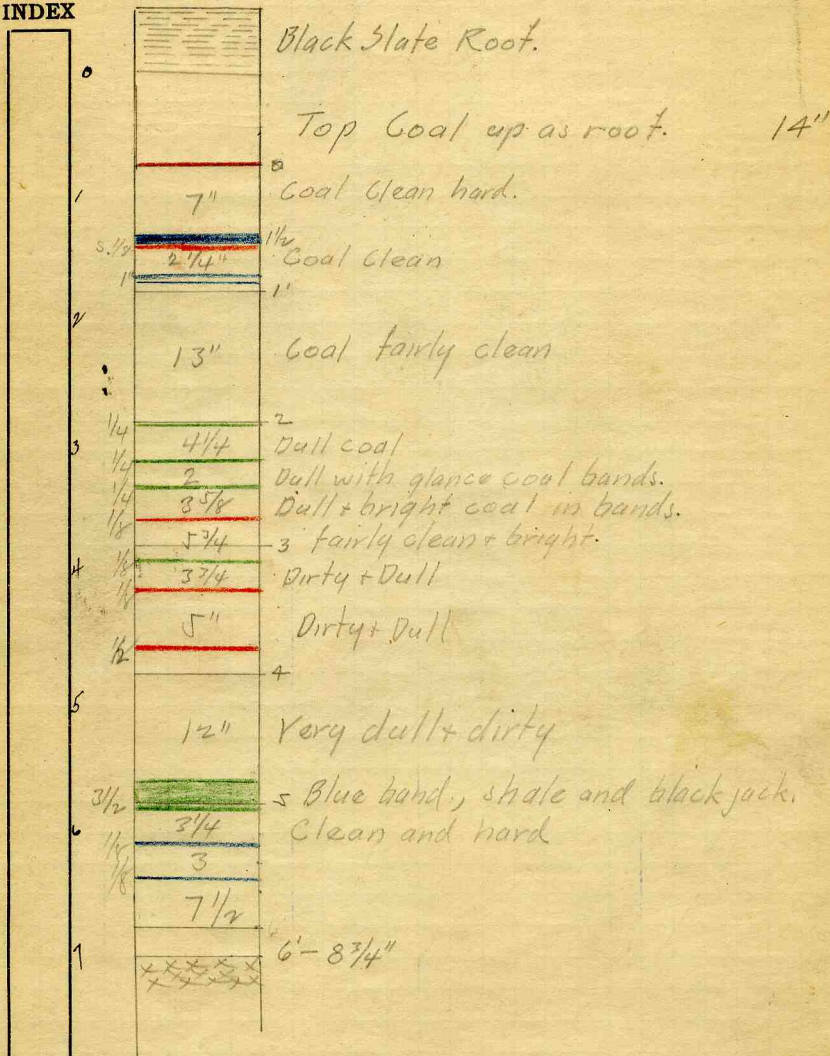 INDEX
Black Slate Roof.
0
Top Coal up as roof. 14"
0
1 7" Coal Clean hard.
1 1/2
S. 1/8 2 1/4" Coal Clean
1" 1'
2
13" Coal fairly clean
1/4 2
3 4 1/4 Dull coal
1/4 2 Dull with glance coal bands.
1/4 3 5/8 Dull + bright coal in bands.
1/8 5 3/4 3 fairly clean + bright.
4 1/8 3 3/4 Dirty + Dull
1/2 5" Dirty + Dull
1/2
4
5
12" Very dull + dirty
3 1/2 5 Blue band, shale and blackjack.
6 3 1/4 Clean and hard
1/8 3
1/8
7 1/2
6
7 6' - 8 3/4"